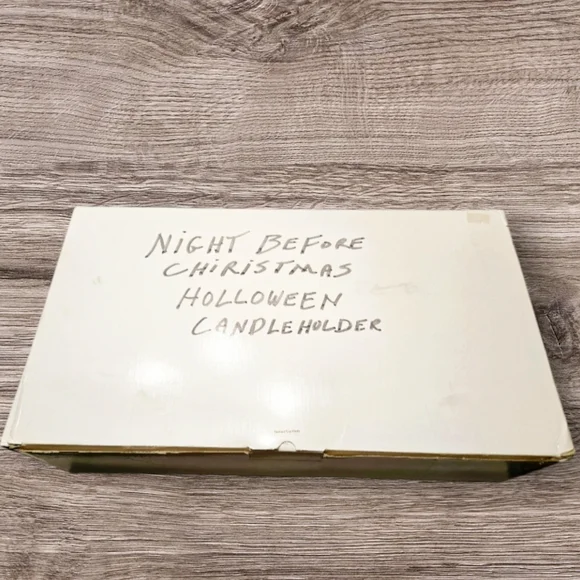 NIGHT BEFORE
CHIRISTMAS
HOLLOWEEN
CANDLEHOLDER